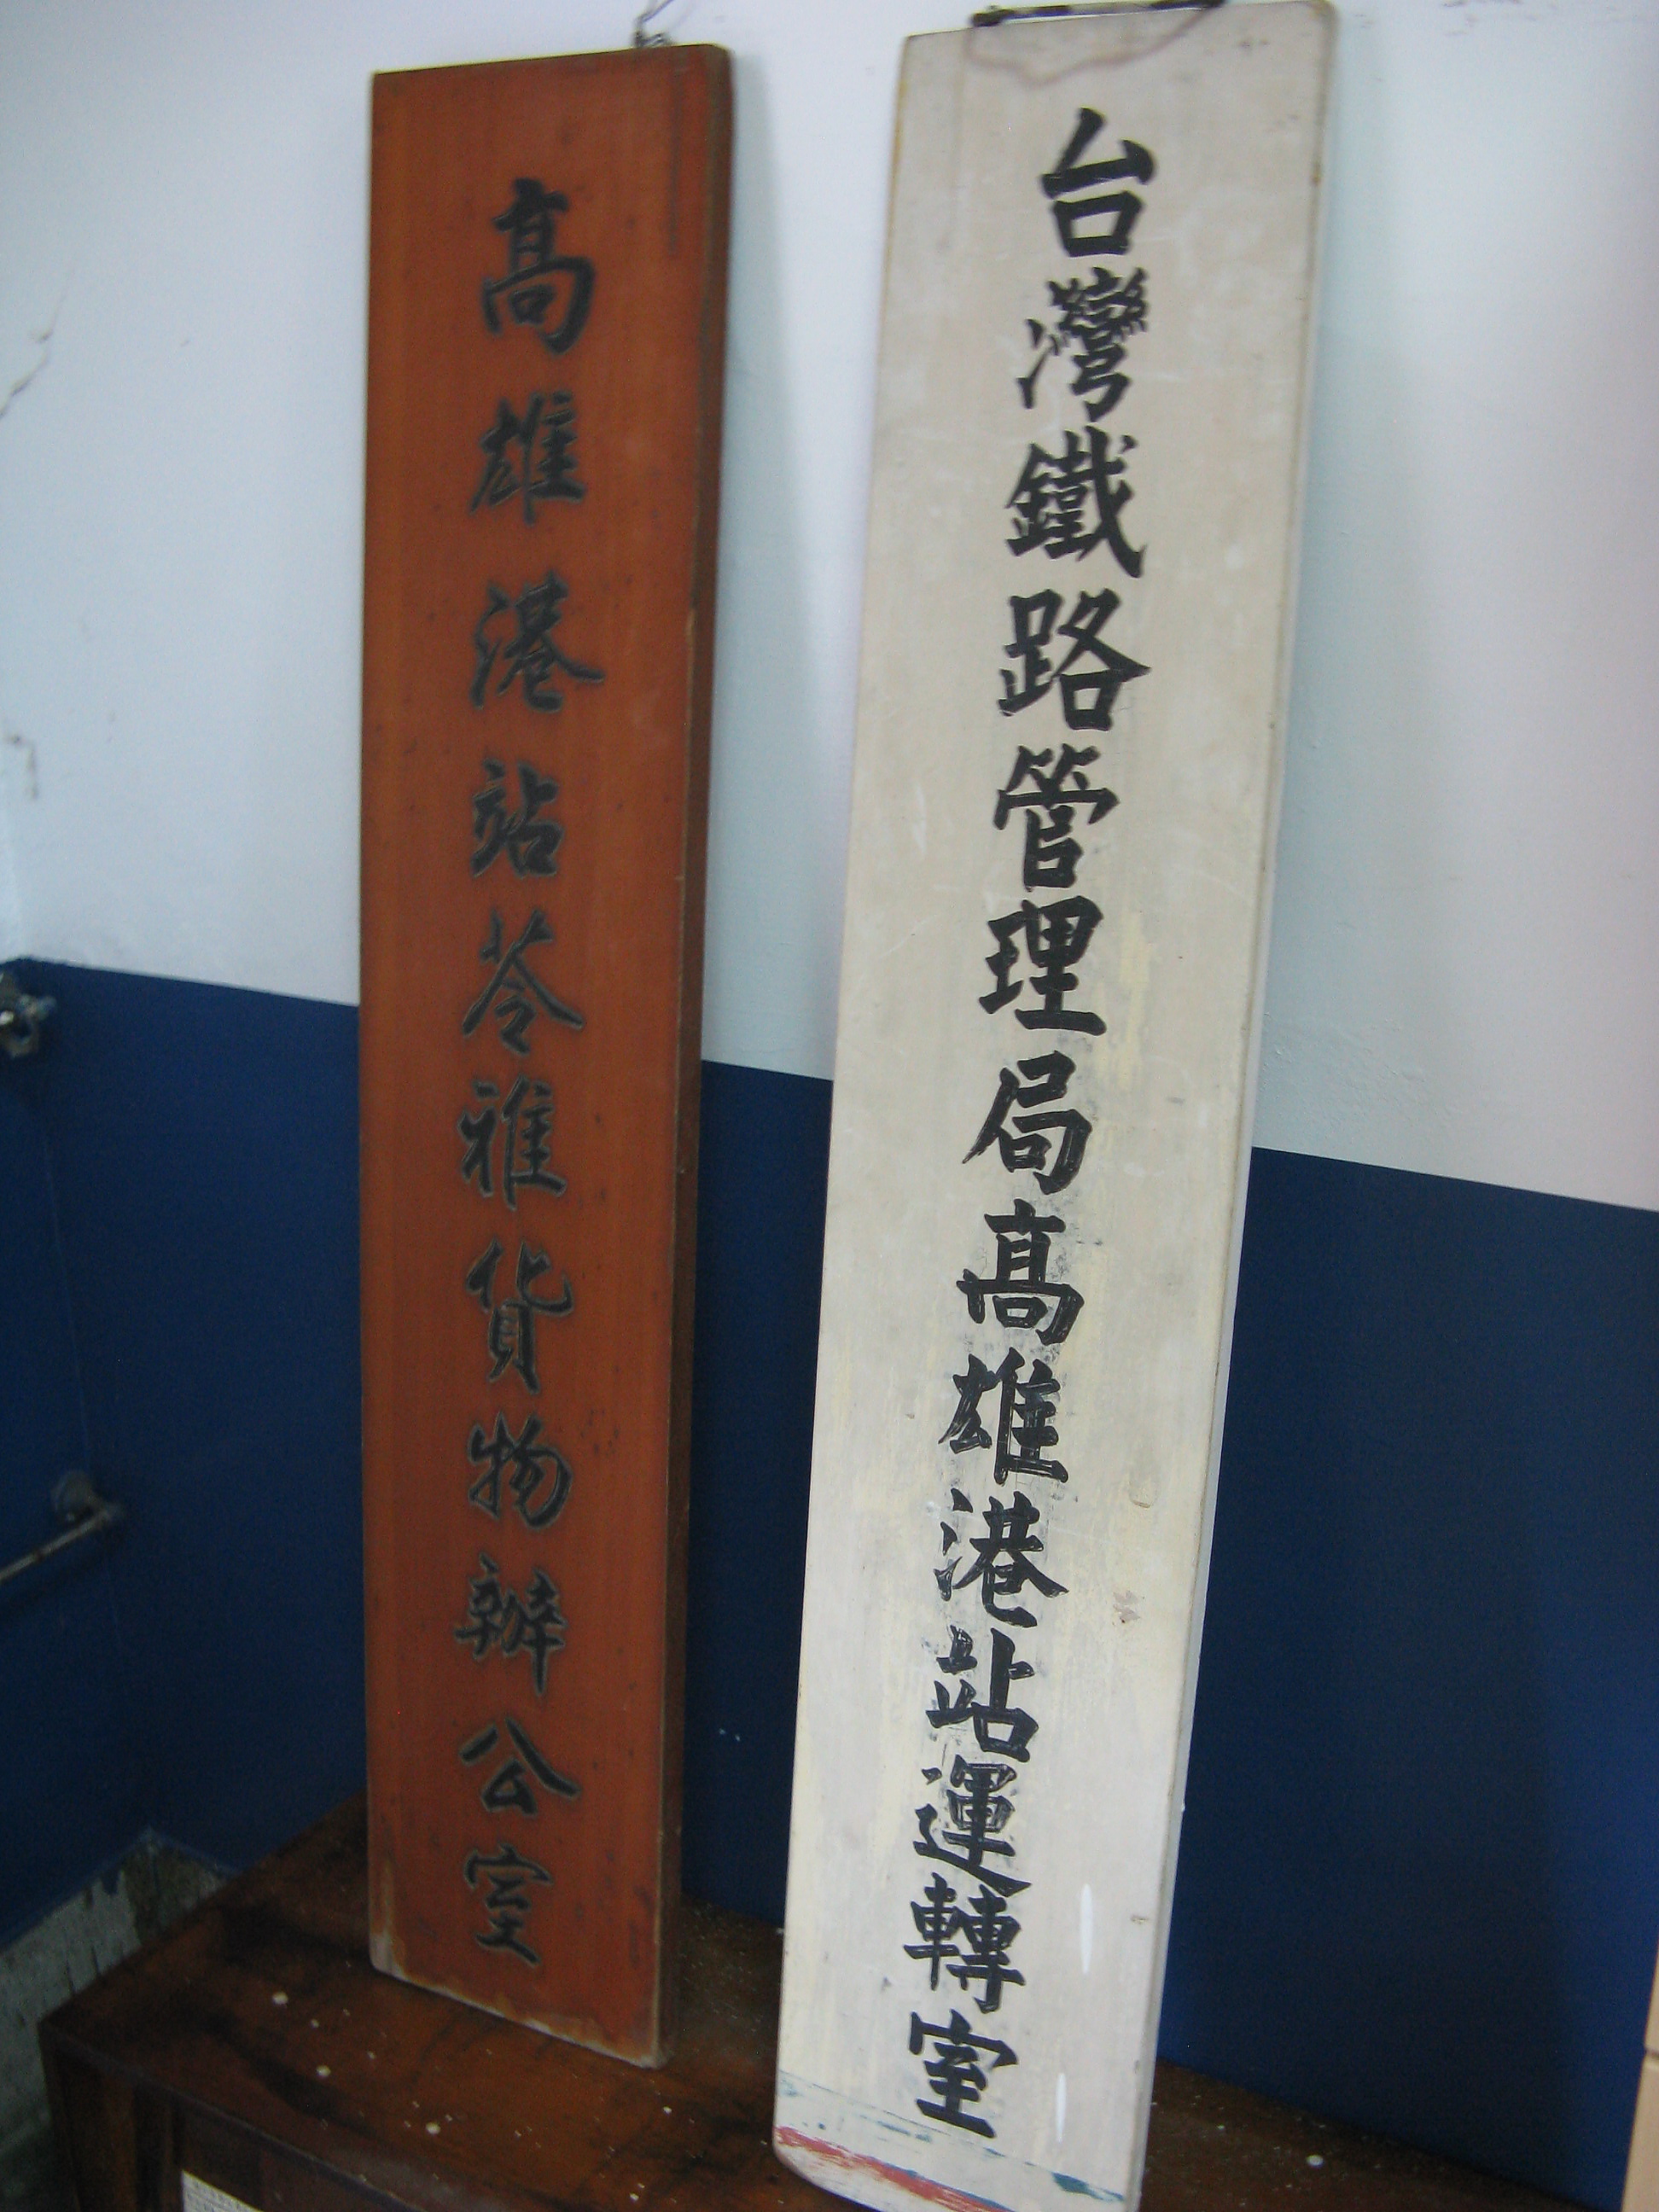 台灣鐵路管理局高雄港站運轉室
高雄港站苓雅貨物辦公室